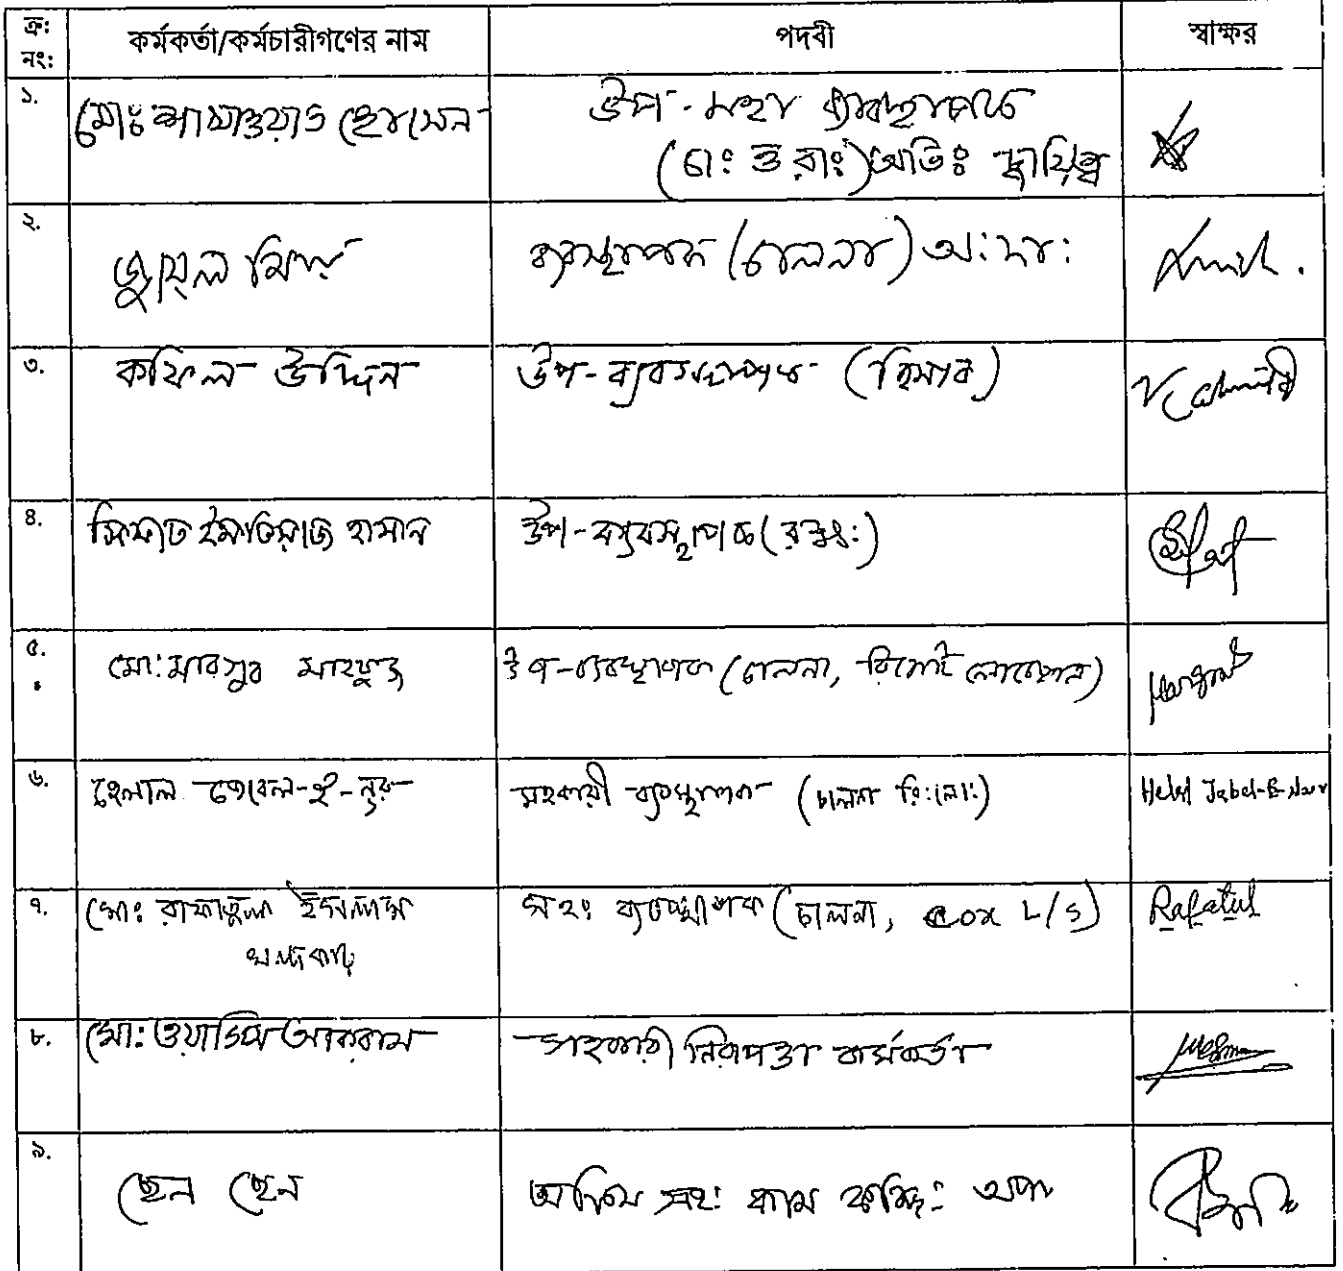 ক্র: নং: কর্মকর্তা/কর্মচারীগণের নাম পদবী স্বাক্ষর
১. মোঃ সাখাওয়াত হোসেন উপ-মহা ব্যবস্থাপক
(চাঃ ও রাঃ) অতিঃ দায়িত্ব
২. জুয়েল মিয়া ব্যবস্থাপক (চালনা) অ:দা:
৩. কফিল উদ্দিন উপ-ব্যবস্থাপক (হিসাব)
৪. সিফাত ইমতিয়াজ হাসান উপ-ব্যবস্থাপক (রক্ষঃ)
৫. মো: মারগুব মাহফুজ উপ-ব্যবস্থাপক (চালনা, রিমোট লোকেশন)
৬. হেলাল জেবেল-ই-নুর সহকারী ব্যবস্থাপক (চালনা রি:লো:) Helal Jebel-E-Nur
৭. মোঃ রাফাতুল ইসলাম সহঃ ব্যবস্থাপক (চালনা, Cox L/S) Rafatul
খন্দকার
৮. মো: ওয়াসিম আকরাম সহকারী নিরাপত্তা কর্মকর্তা
৯. ছেন ছেন অফিস সহ: কাম কম্পি: অপা: